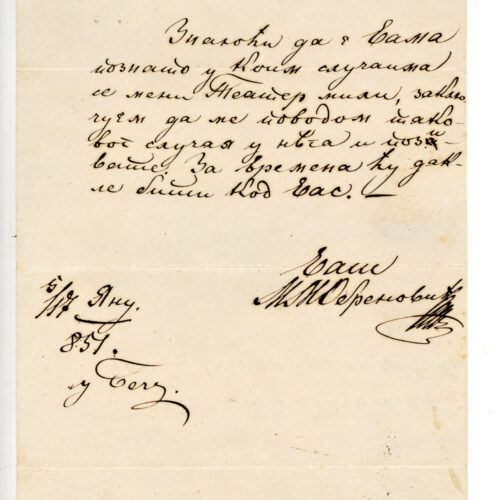 Знаюћи да є Вама
познато у коим случаима
се мени Театер мили, заклю-
чуем да ме поводом тако-
вог случая у нѣга и пози-
вате. За времена ћу дак-
ле бити код Вас. —
Ваш
М. Обреновић
5/17 Яну.
851.
у Бечу.